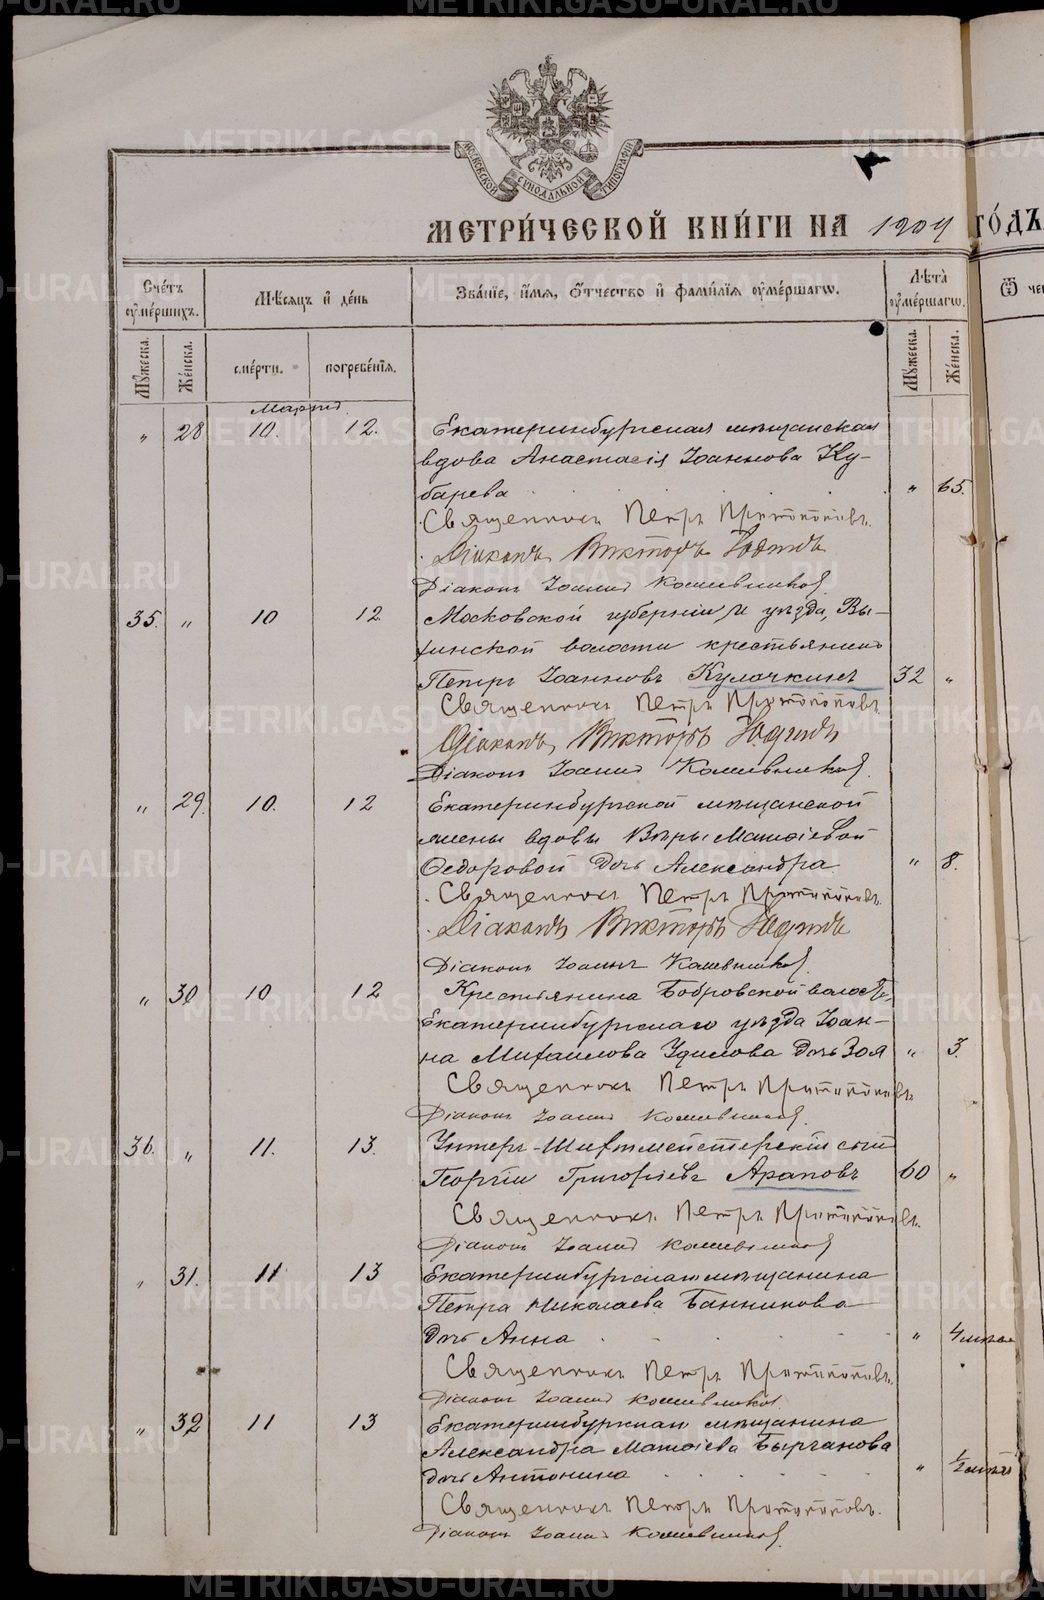 МОСКОВСКОЙ СѴНОДАЛЬНОЙ ТИПОГРАФІИ
МЕТРИ́ЧЕСКОЙ КНИ́ГИ НА 1904 ГО́ДЪ
Сче́тъ ѹ҆ме́ршихъ.
Мѣ́сяцъ и҆ де́нь
Зва́нїе, и҆́мѧ, ѻ҆́тчество и҆ фами́лїѧ ѹ҆ме́ршагѡ.
Лѣ́та ѹ҆ме́ршагѡ.
Ѿ че
Мꙋ́жеска.
Же́нска.
сме́рти.
погребе́нїѧ.
Мꙋ́жеска.
Же́нска.
Марта.
„ 28 10. 12. Екатеринбургская мѣщанская
вдова Анастасія Іоаннова Ку-
барева „ 65.
Священникъ Петръ Протопоповъ.
Діаконъ Викторъ Юдинъ
Діаконъ Іоаннъ Кошевниковъ
35. „ 10 12 Московской губерніи и уѣзда, Вы-
хинской волости крестьянинъ
Петръ Іоанновъ Кулочкинъ 32 „
Священникъ Петръ Протопоповъ.
Діаконъ Викторъ Юдинъ
Діаконъ Іоаннъ Кошевниковъ.
„ 29. 10. 12 Екатеринбургской мѣщанской
жены вдовы Вѣры Матѳіевой
Ѳедоровой дочь Александра „ 8.
Священникъ Петръ Протопоповъ.
Діаконъ Викторъ Юдинъ
Діаконъ Іоаннъ Кошевниковъ
„ 30 10 12 Крестьянина Бобровской волости,
Екатеринбургскаго уѣзда Іоан-
на Михаилова дочь Зоя „ 3.
Священникъ Петръ Протопоповъ.
Діаконъ Іоаннъ Кошевниковъ.
36. „ 11. 13. Унтеръ-Шихтмейстерскій сынъ
Георгій Григоріевъ Араповъ 60 „
Священникъ Петръ Протопоповъ.
Діаконъ Іоаннъ Кошевниковъ
„ 31. 11 13 Екатеринбургскаго мѣщанина
Петра Николаева Банникова
дочь Анна „
Священникъ Петръ Протопоповъ.
Діаконъ Іоаннъ Кошевниковъ
„ 32 11 13 Екатеринбургскаго мѣщанина
Александра Матѳіева
дочь Антонина „
Священникъ Петръ Протопоповъ.
Діаконъ Іоаннъ Кошевниковъ.
METRIKI.GASO-URAL.RU